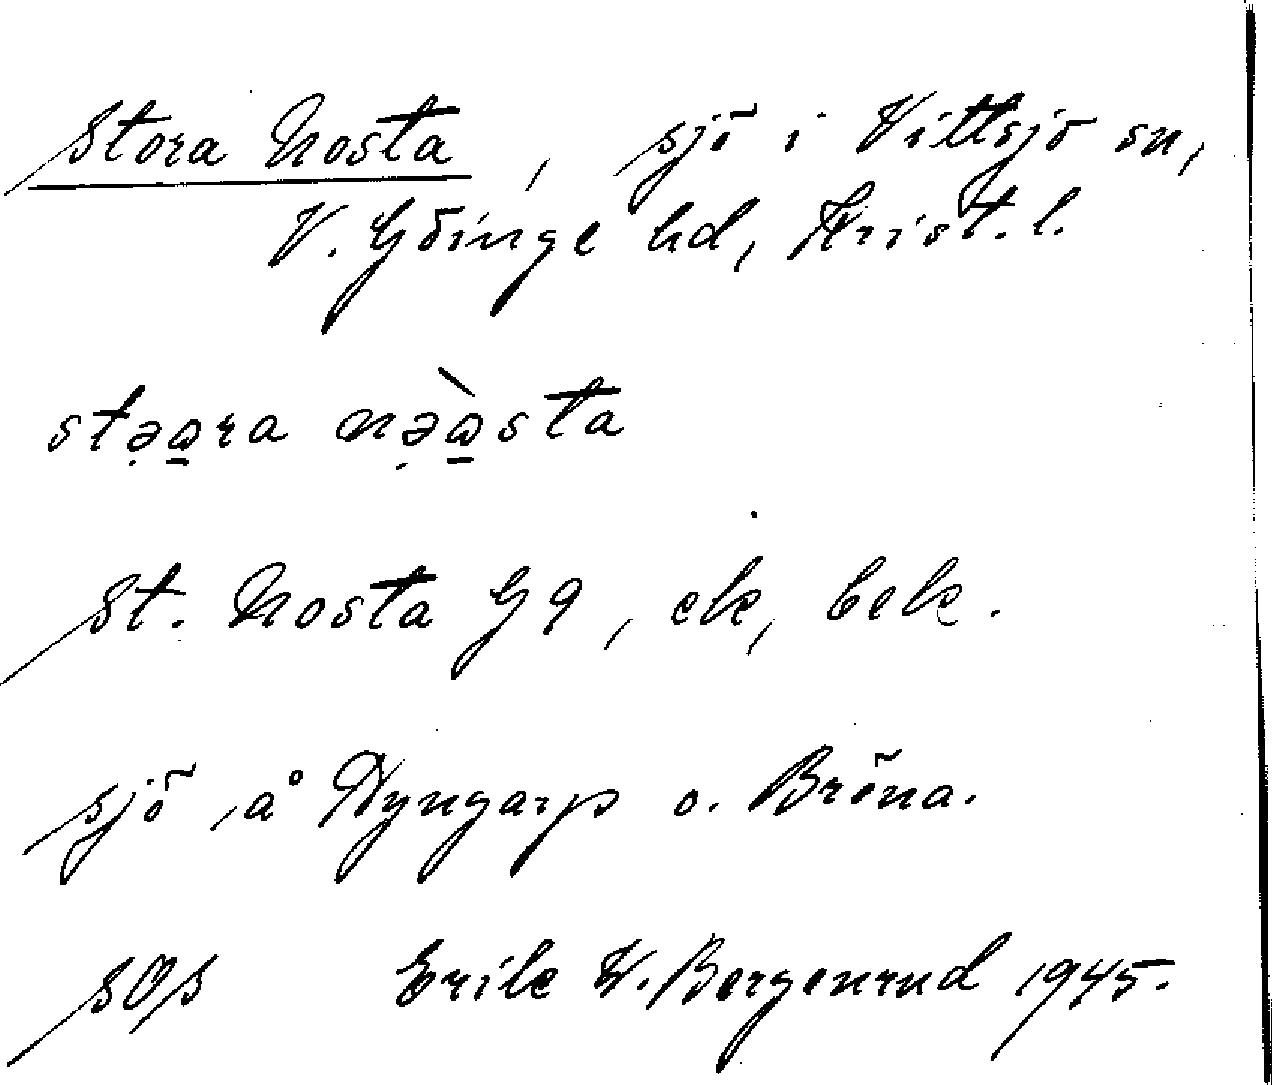 Stora Nosta, sjö i Vittsjö sn,
V. Göinge hd, Krist. l.
stə̣a̱ra nə̣̀a̱sta
St. Nosta G9, ek, bek.
sjö å Dyngarp o. Bröna.
SOS Erik W. Bergenrud 1945.